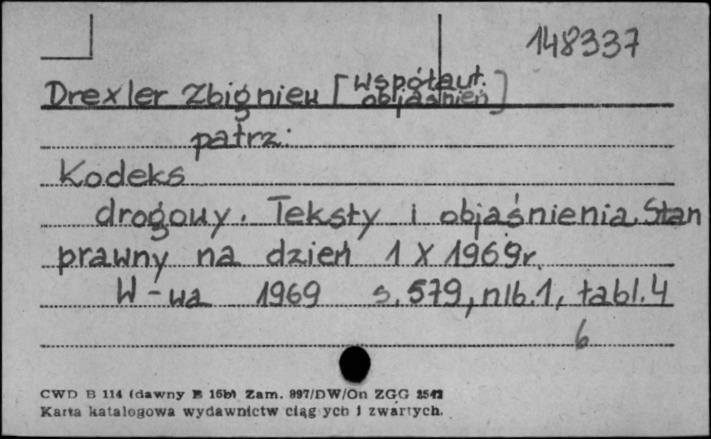 148337
Drexler Zbigniew [współaut. objaśnień]
patrz:
Kodeks
drogowy. Teksty i objaśnienia. Stan
prawny na dzień 1 X 1969r.
W-wa 1969 s. 579, nlb. 1, tabl. 4
6
CWD B 114 (dawny B 16b) Zam. 897/DW/On ZGG 2542
Karta katalogowa wydawnictw ciągłych i zwartych.